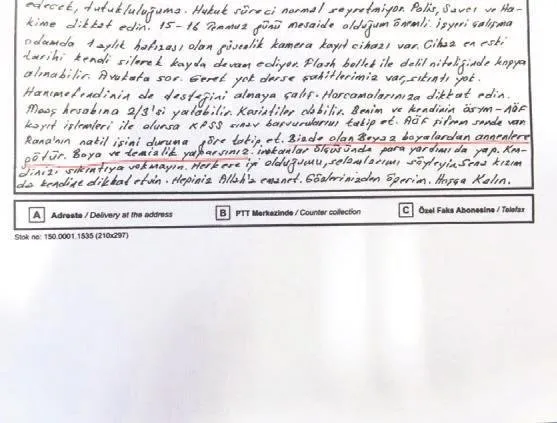 edecek, tutukluluğuma. Hukuk süreci normal seyretmiyor. Polis, Savcı ve Ha-
kime dikkat edin. 15-16 Temmuz günü mesaide olduğum önemli. işyeri çalışma
odamda 1 aylık hafızası olan güvenlik kamera kayıt cihazı var. Cihaz en eski
tarihi kendi silerek kayda devam ediyor. Flash bellek ile delil niteliğinde kopya
alınabilir. Avukata sor. Gerek yok derse şahitlerimiz var, sıkıntı yok.
Hanımefendinin de desteğini almaya çalış. Harcamalarınıza dikkat edin.
Maaş hesabına 2/3'si yatabilir. Kesintiler olabilir. Benim ve kendinin ösym-AÖF
kayıt işlemleri ile olursa KPSS sınav başvurularını takip et. AÖF şifrem sende var.
Rana'nın nakil işini duruma göre takip et. Bizde olan Beyaz boyalardan annenlere
götür. Boya ve temizlik yaparsınız. imkanlar ölçüsünde para yardımı da yap. Ken-
dinizi sıkıntıya sokmayın. Herkese iyi olduğumu, selamlarımı söyleyin. Sena kızım
da kendine dikkat etsin. Hepiniz Allah'a emanet. Gözlerinizden öperim. Hoşça Kalın.
A Adreste / Delivery at the address B PTT Merkezinde / Counter collection C Özel Faks Abonesine / Telefax
Stok no: 150.0001.1535 (210x297)